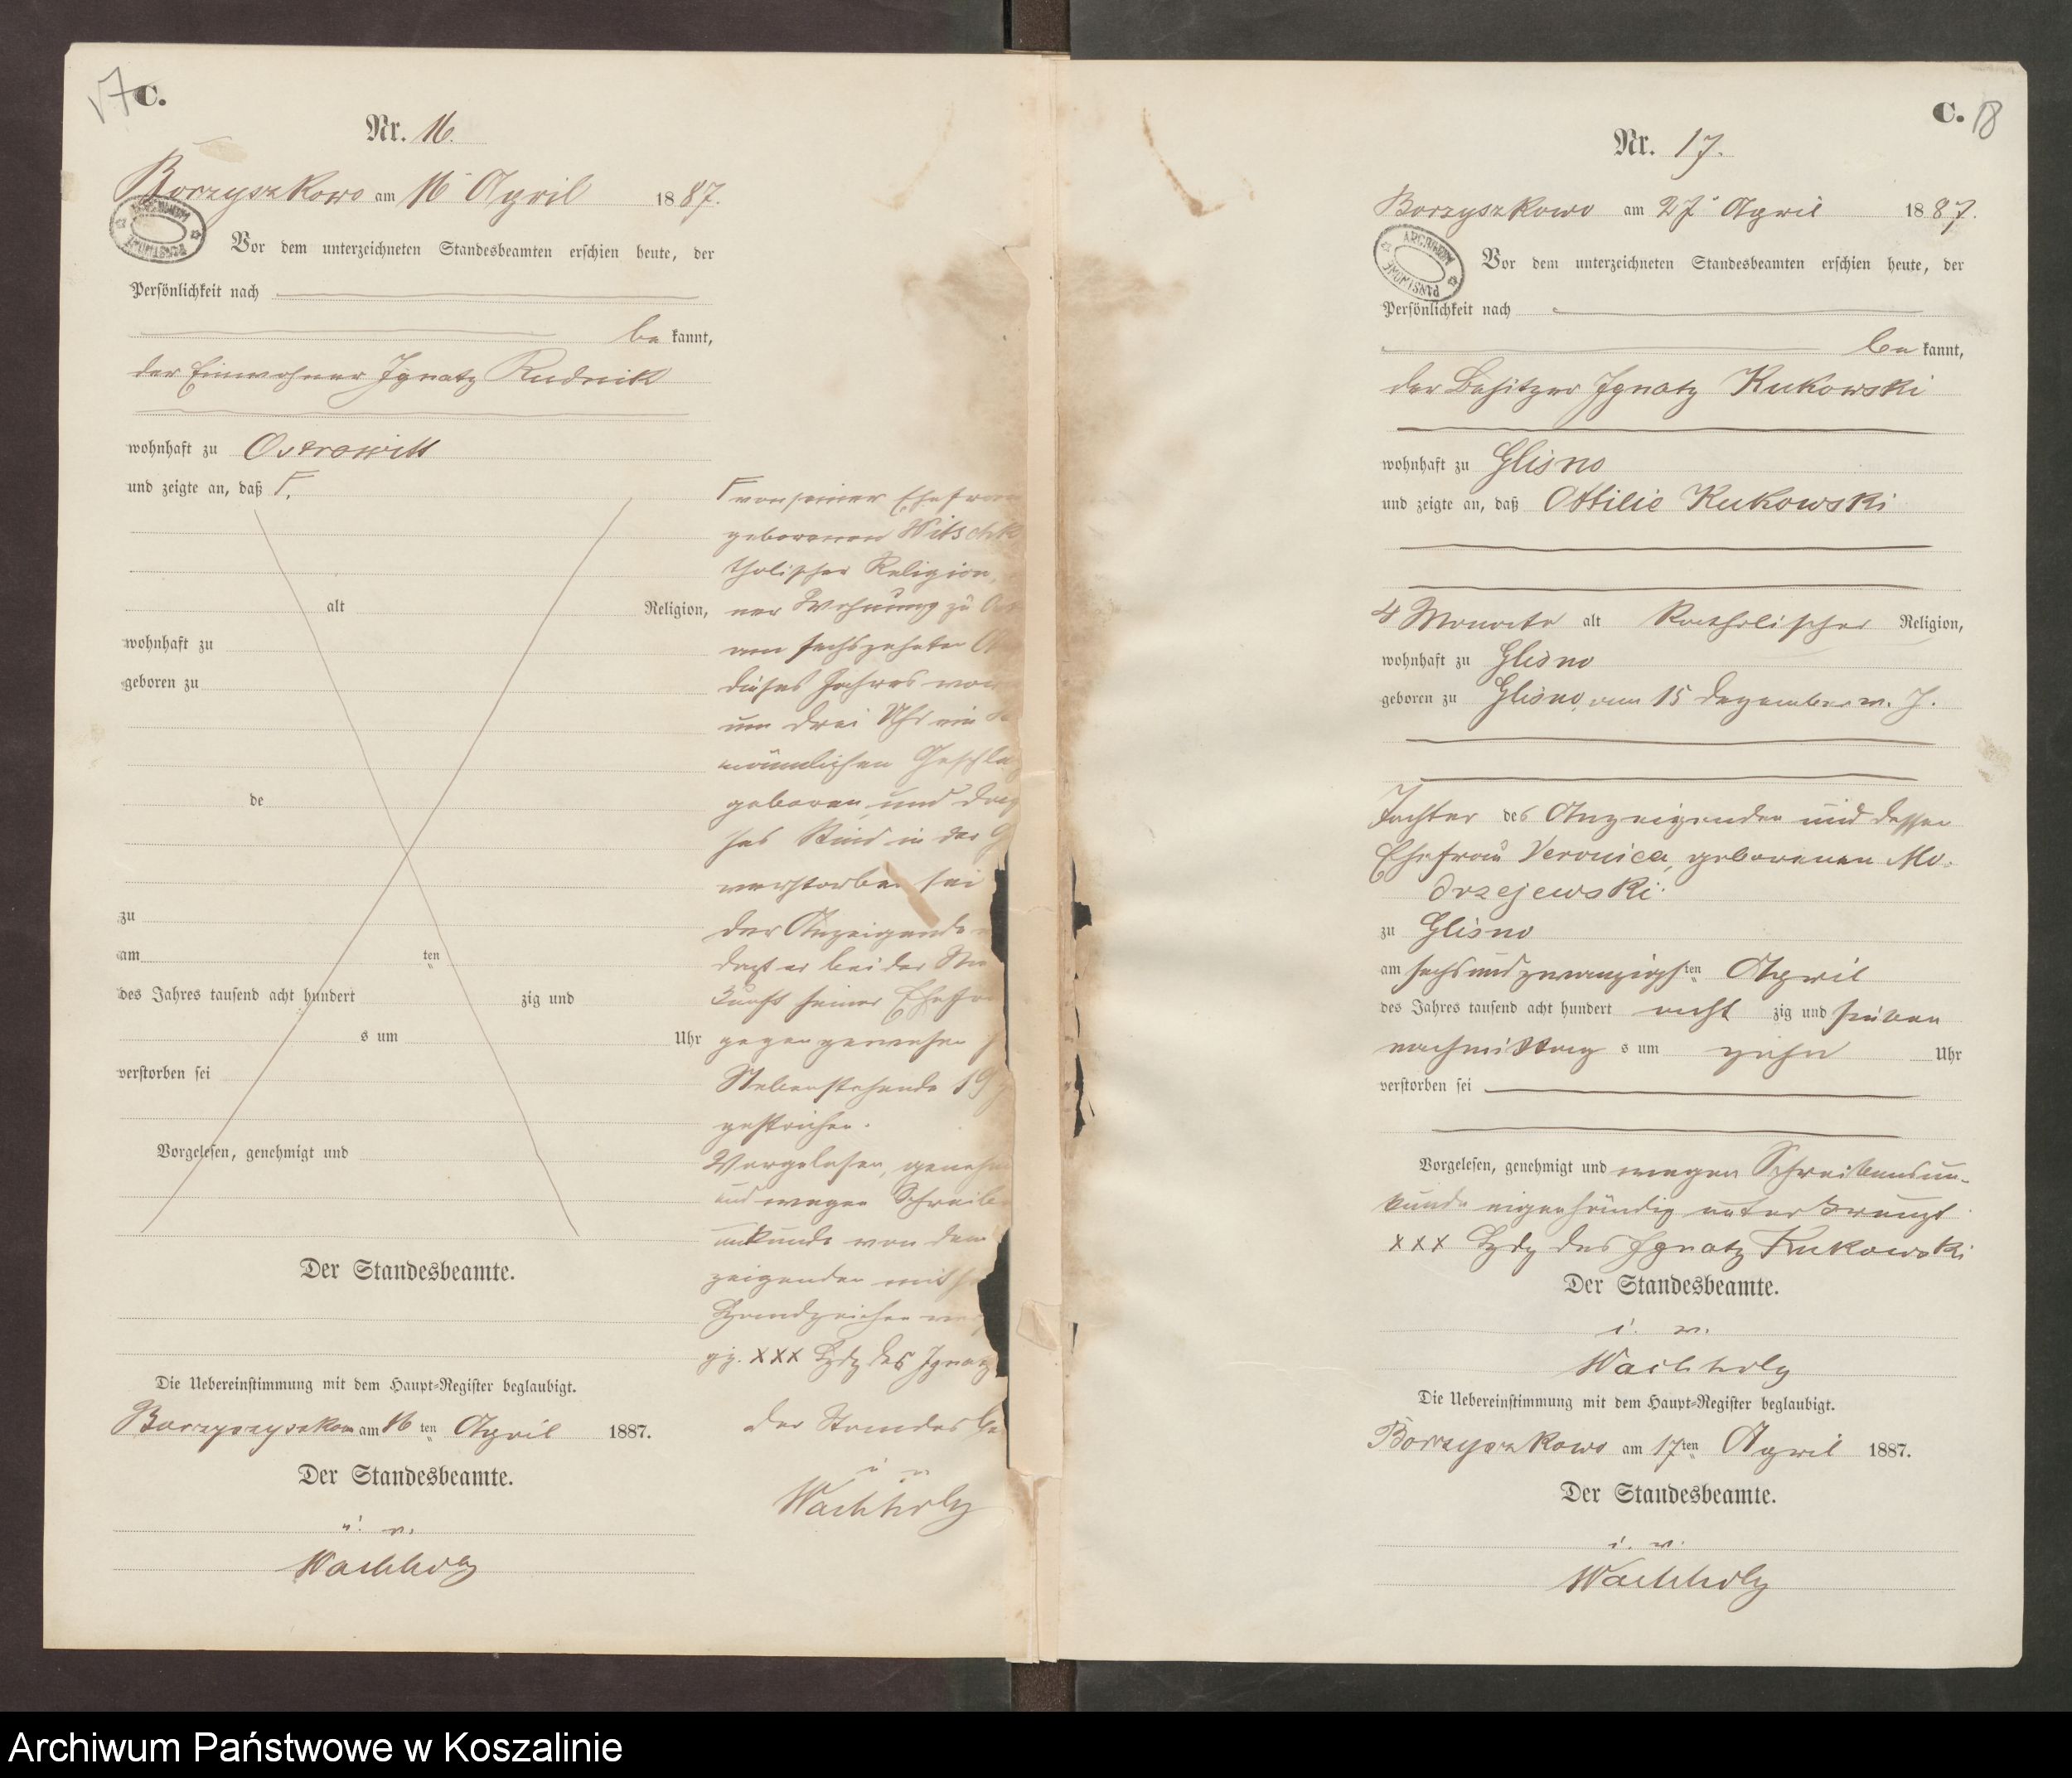 17 C.
Nr. 16.
Borzyszkowo am 16 April 1887.
Vor dem unterzeichneten Standesbeamten erschien heute, der
Persönlichkeit nach
be kannt,
der Einwohner Ignatz Rudnik
wohnhaft zu Ostrowitt
und zeigte an, daß
alt Religion,
wohnhaft zu
geboren zu
de
zu
am ten
des Jahres tausend acht hundert zig und
s um Uhr
verstorben sei
Vorgelesen, genehmigt und
Der Standesbeamte.
Die Uebereinstimmung mit dem Haupt-Register beglaubigt.
am 16 ten April 1887.
Der Standesbeamte.
i. v.
Wachholz
von seiner Ehefrau
geborenen
tholischer Religion,
ner Wohnung zu
am sechszehnten
dieses Jahres
um drei Uhr ein
männlichen
geboren und
Kind in der
verstorben sei
der Anzeigende
daß er bei der
kunft seiner
gegen gewesen
Nebenstehende 19
gestrichen.
Vorgelesen,
und wegen
unkunde von dem
zeigenden mit
Handzeichen
gez. XXX Hdz des Ignatz
Der Standesbe
i v
Wachholz
C. 18
Nr. 17.
Borzyszkowo am 27 April 1887.
ARCHIWUM PAŃSTWOWE
Vor dem unterzeichneten Standesbeamten erschien heute, der
Persönlichkeit nach
be kannt,
der Besitzer Ignatz Kukowski
wohnhaft zu Glisno
und zeigte an, daß Ottilie Kukowski
4 Monate alt katholischer Religion,
wohnhaft zu Glisno
geboren zu Glisno, am 15 Dezember v. J.
Tochter des Anzeigenden und dessen
Ehefrau Veronica, geborenen Mo-
drzejewski.
zu Glisno
am sechsundzwanzigsten April
des Jahres tausend acht hundert acht zig und sieben
nachmittag s um zehn Uhr
verstorben sei
Vorgelesen, genehmigt und wegen Schreibensun-
kunde eigenhändig unterkreuzt
XXX Hdz des Ignatz Kukowski
Der Standesbeamte.
i. v.
Wachholz
Die Uebereinstimmung mit dem Haupt-Register beglaubigt.
Borzyszkowo am 17ten April 1887.
Der Standesbeamte.
i. v.
Wachholz
Archiwum Państwowe w Koszalinie